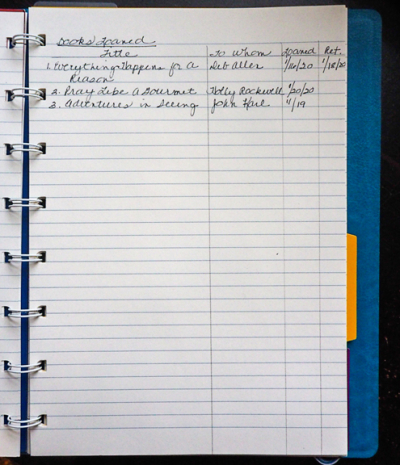 Books Loaned
Title To Whom Loaned Ret.
1. Everything Happens for A Deb Allen 1/16/20 1/18/20
Reason
2. Pray Like a Gourmet Holly Rockwell 1/20/20
3. Adventures in Seeing John Hail 11/19